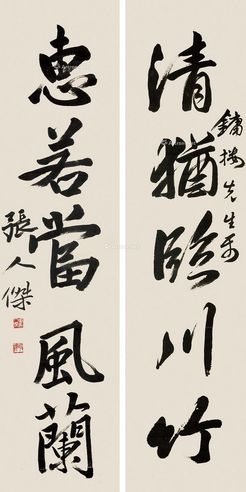 清猶臨川竹
鏞樓先生属
惠若當風蘭
張人傑